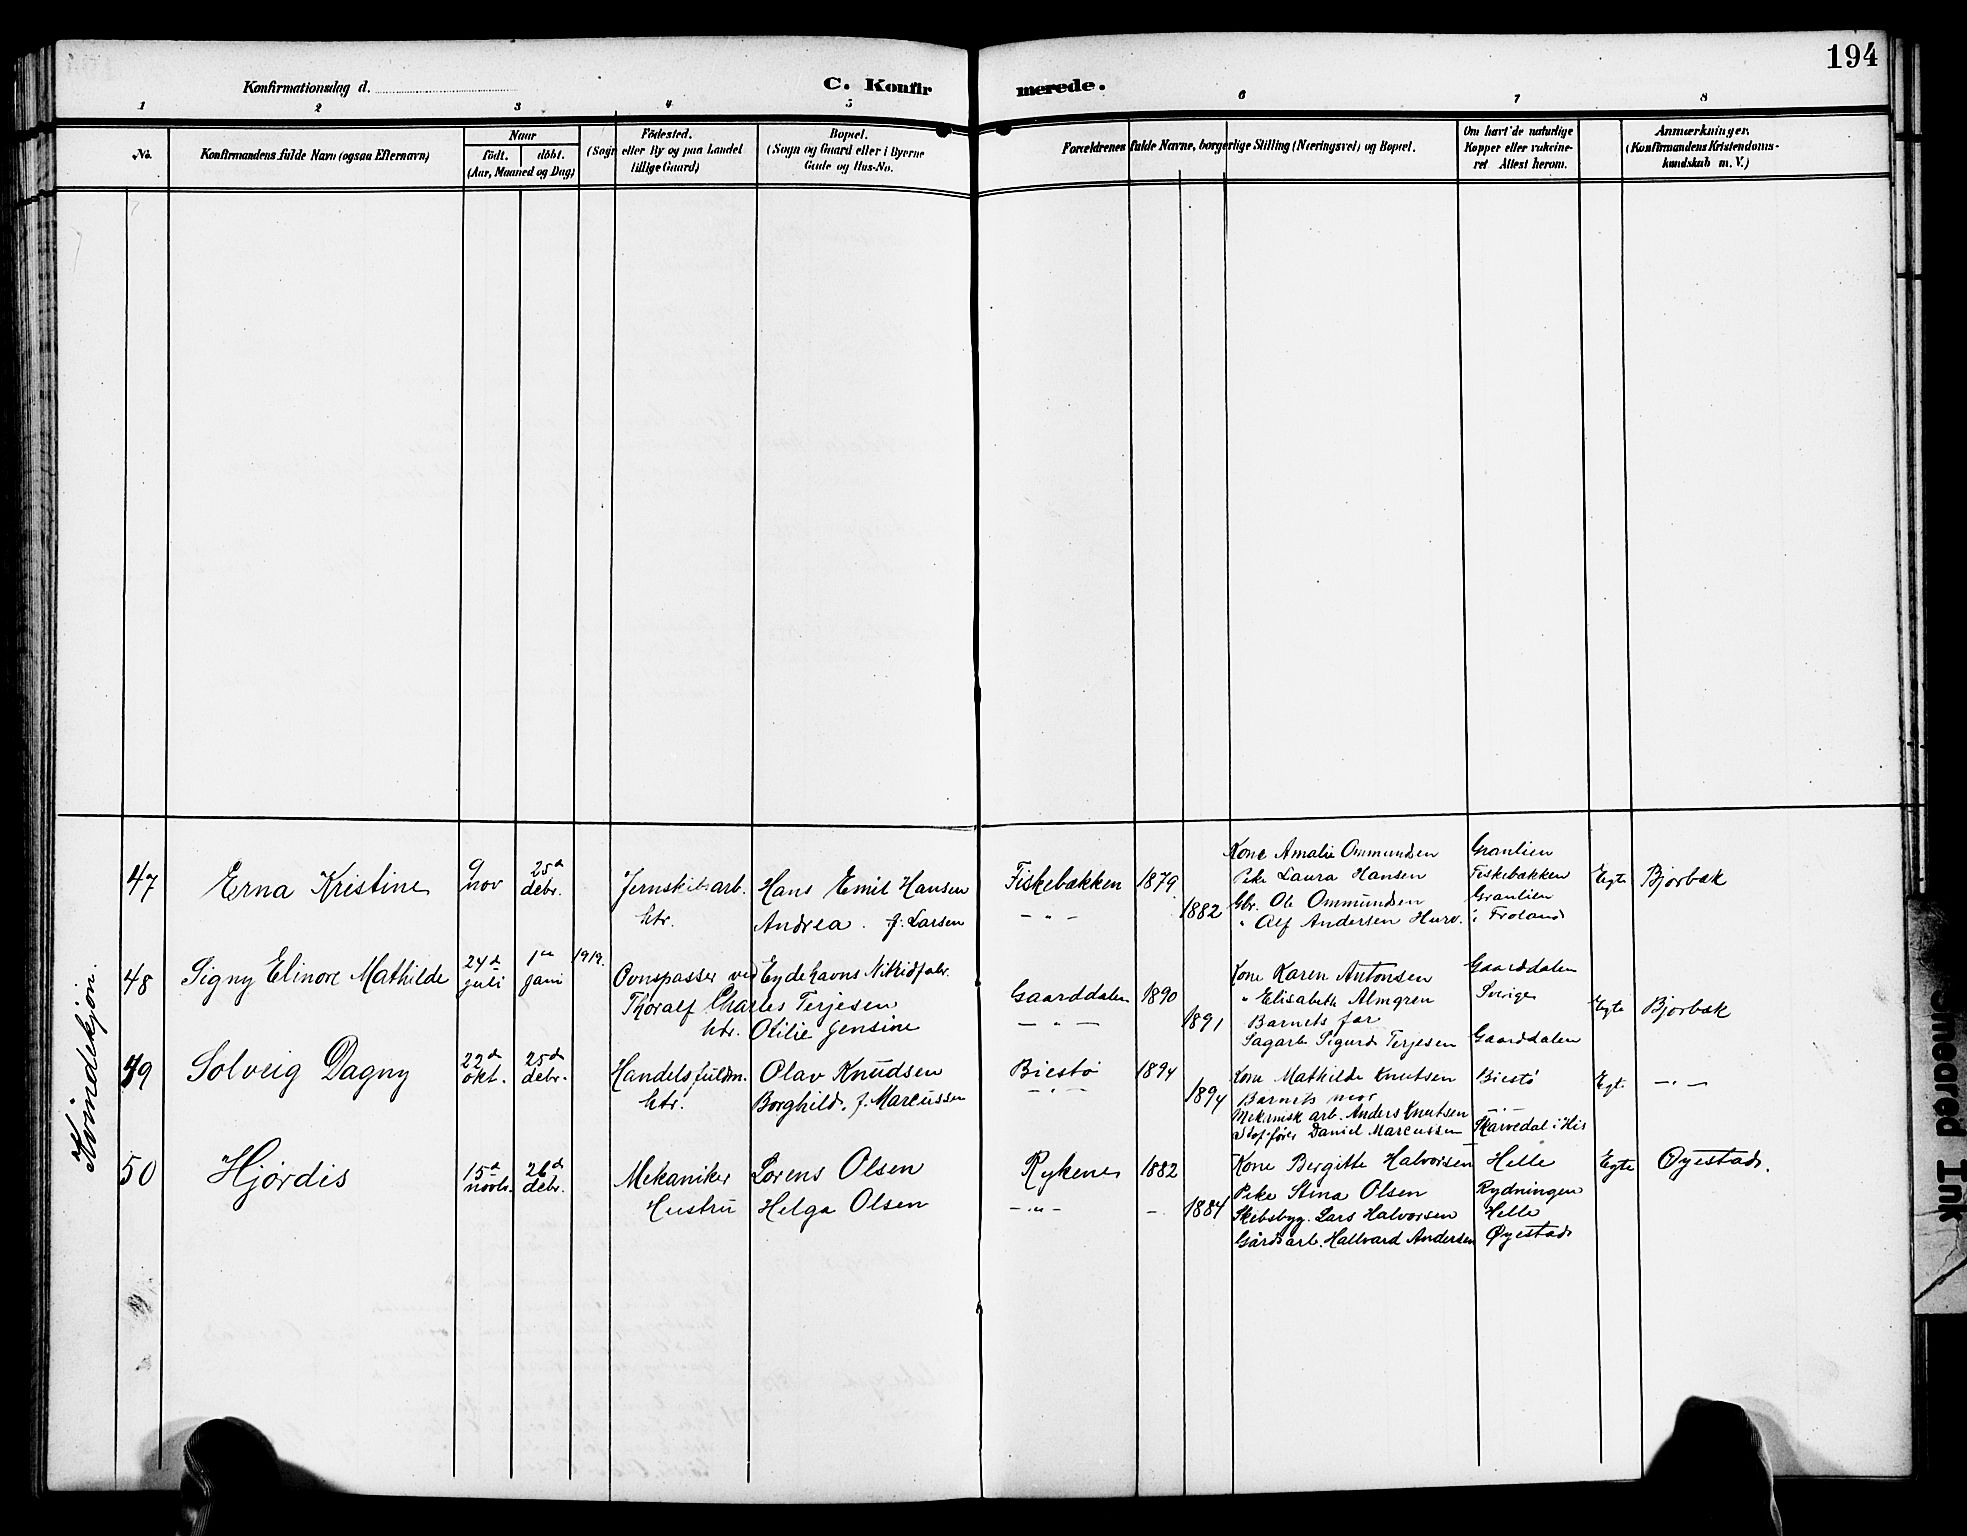 194
Konfirmationsdag d.
C. Konfir
merede.
1 2 3 4 5 6 7 8
No.
Konfirmandens fulde Navn (ogsaa Efternavn)
Naar
født. döbt.
(Aar, Maaned og Dag)
Födested.
(Sogn eller By og paa Landet
tillige Gaard)
Bopæl.
(Sogn og Gaard eller i Byerne
Gade og Hus-No.
Forældrenes fulde Navne, borgerlige Stilling (Næringsvei) og Bopæl.
Om havt de naturlige
Kopper eller vakcine-
ret Attest herom.
Anmærkninger.
(Konfirmandens Kristendoms-
kundskab m. V.)
Kvindekjøn.
47 Erna Kristine 9 nov 25d debr. Jernskibsarb. Hans Emil Hansen Fiskebækken 1879
htr. Andrea f. Larsen — " — 1882
Kone Amalie Ommundsen Granlien
Pike Laura Hansen Fiskebækken Egte Bjorbæk
Gbr. Ole Ommundsen Granlien
" Alf Andersen i Froland
48 Signy Elinore Mathilde 24d juli 1ste jani 1919. Ovnspasser ved Eydehavns Nitridfabr.
Thoralf Charles Terjesen Gaarddalen 1890
htr. Otilie Jensine — " — 1891
Kone Karen Antonsen Gaarddalen
" Elisabeth Almgren Sverige Egte Bjorbæk
Barnets far
Sagarb Sigurd Terjesen Gaarddalen
49 Solveig Dagny 22d okt. 25d debr. Handelsfuldm. Olav Knudsen Biestø 1894
htr. Borghild f. Marcussen — " — 1894
Kone Mathilde Knutsen Biestø Egt. — " —
Barnets mor
Mekanisk arb. Anders Knutsen — " —
Daniel Marcussen Skarvedal i His
50 Hjørdis 15d novbr. 26d debr. Mekaniker Lorens Olsen Rykene 1882
Hustru Helga Olsen — " — - 1884
Kone Bergitte Halvorsen Helle Egte Øyestad.
Pike Stina Olsen Rydningen
Skibsbyg. Lars Halvorsen Helle
Gårdsarb. Hallvard Andersen Øyestad
Smeared Ink